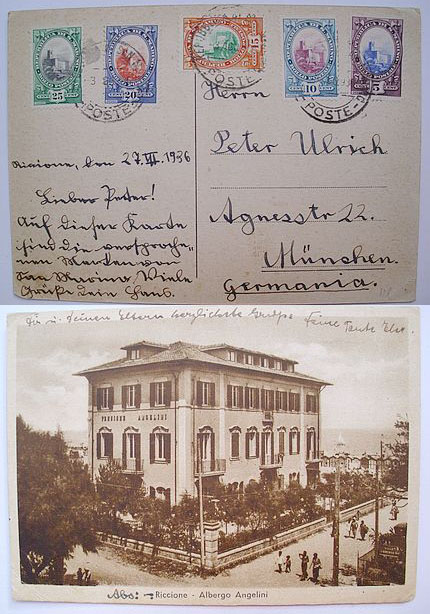 25
20
15
10
5
POSTE
POSTE
POSTE
Herrn
Peter Ulrich
Agnesstr 22.
München.
Germania.
Riccione, den 27.VII.1936
Lieber Peter!
Auf dieser Karte
sind die versproche-
nen Marken von
San Marino. Viele
Grüße dein Hans.
Dir u. Deinen Eltern herzlichste Grüße Deine Tante Else.
PENSIONE ANGELINI
Abs: Riccione - Albergo Angelini